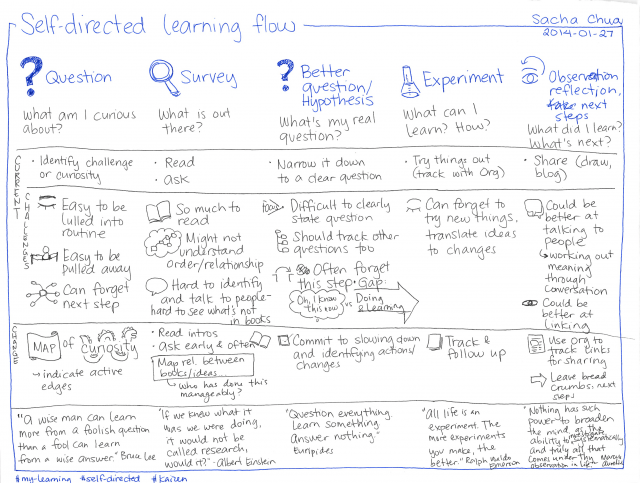 Self-directed learning flow
Sacha Chua
2014-01-27
? Question
What am I curious
about?
Survey
What is out
there?
? Better
question/
Hypothesis
What's my real
question?
Experiment
What can I
learn? How?
Observation
reflection,
take next
steps
What did I learn?
What's next?
CURRENT
• Identify challenge
or curiosity
• Read
• Ask
• Narrow it down
to a clear question
• Try things out
(track with Org)
• Share (draw,
blog)
CHALLENGES
Easy to be
lulled into
routine
Easy to be
pulled away
Can forget
next step
So much to
read
Might not
understand
order/relationship
Hard to identify
and talk to people-
hard to see what's not
in books
Difficult to clearly
state question
Should track other
questions too
Often forget
this step • Gap:
Oh, I know
this now
vs
Doing
& learning
Can forget to
try new things,
translate ideas
to changes
Could be
better at
talking to
people
working out
meaning
through
conversation
Could be
better at
linking
CHANGE
MAP of Curiosity
indicate active
edges
• Read intros
• Ask early & often
Map rel. between
books/ideas...
who has done this
manageably?
Commit to slowing down
and identifying actions/
changes
Track &
follow up
Use Org to
track links
for sharing
Leave bread
crumbs: next
steps
"A wise man can learn
more from a foolish question
than a fool can learn
from a wise answer." Bruce Lee
"If we knew what it
was we were doing,
it would not be
called research,
would it?" - Albert Einstein
"Question everything.
Learn something.
Answer nothing."
Euripides
"All life is an
experiment. The
more experiments
you make, the
better." Ralph Waldo
Emerson
"Nothing has such
power to broaden
the mind as the
ability to investigate systematically
and truly all that
comes under thy
observation in life." Marcus
Aurelius
#my-learning #self-directed #kaizen